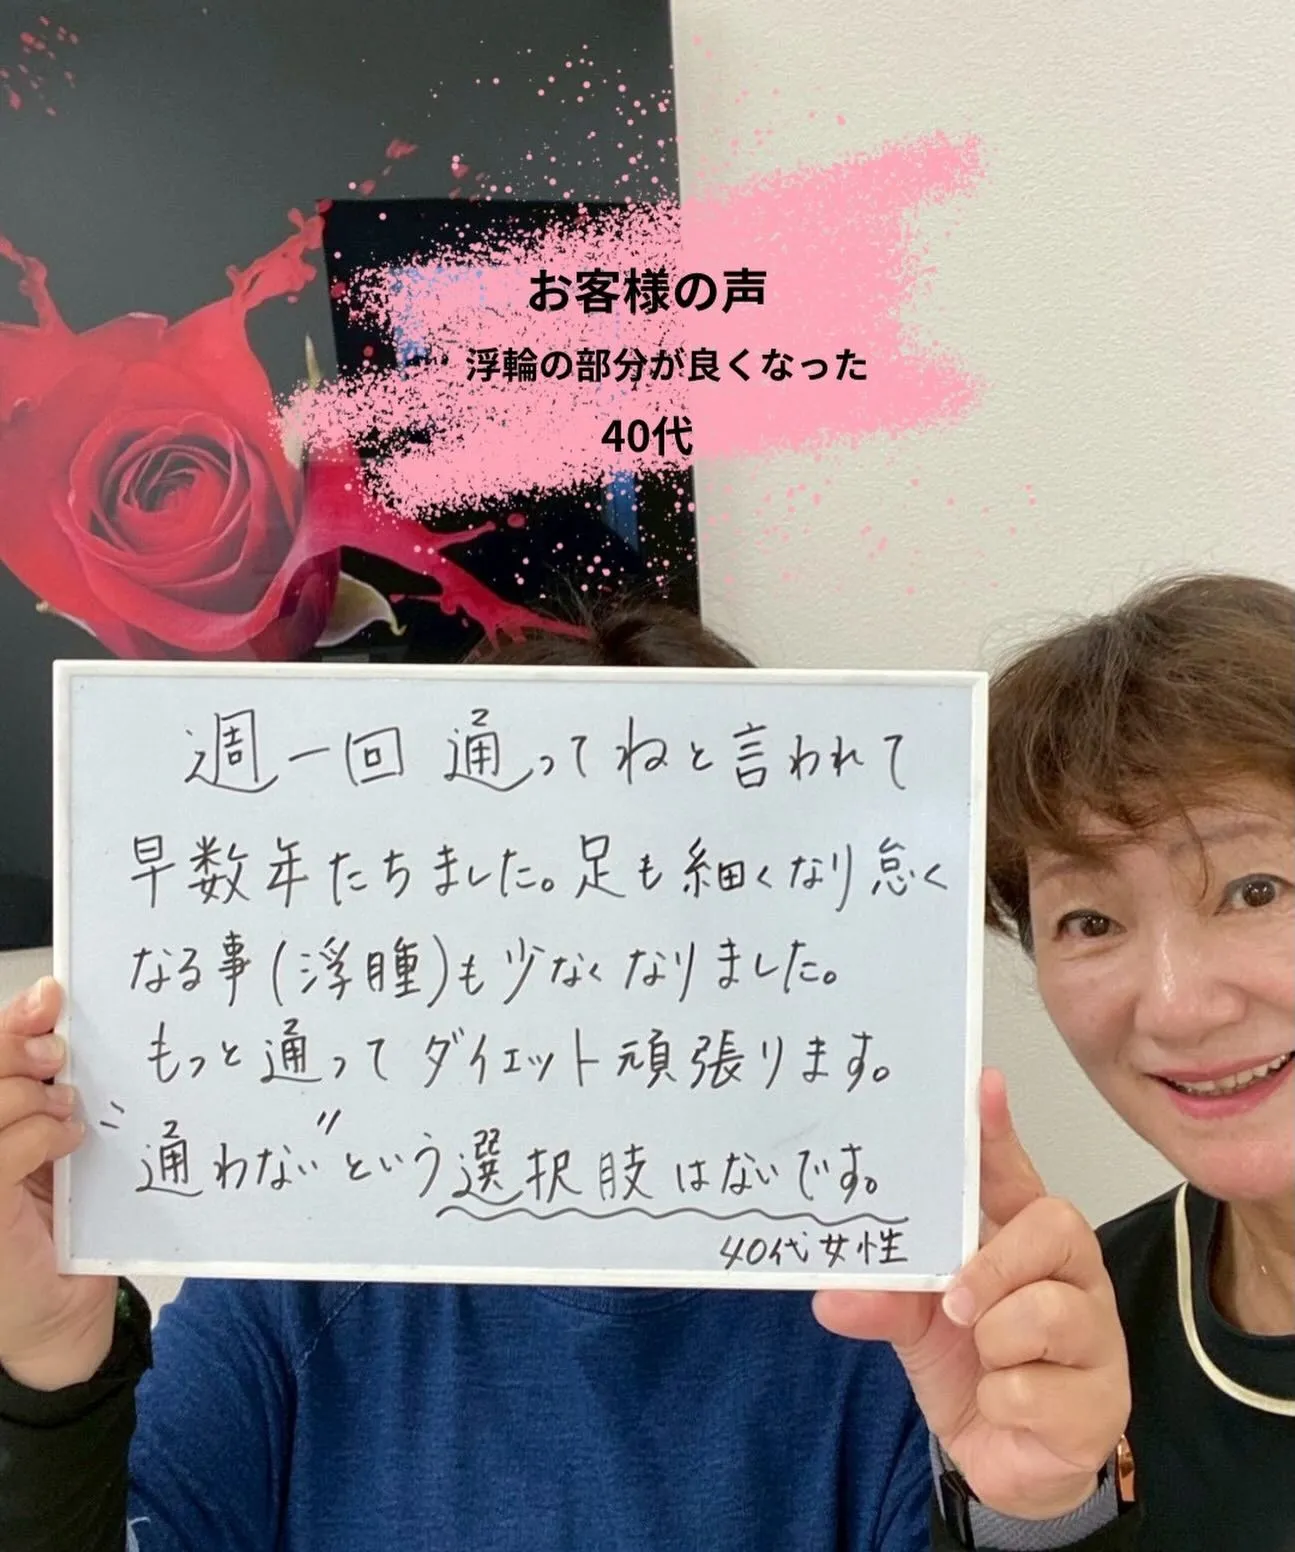 お客様の声
浮輪の部分が良くなった
40代
週一回 通ってねと言われて
早数年たちました。足も細くなり怠く
なる事(浮腫)も少なくなりました。
もっと通ってダイエット頑張ります。
"通わない"という選択肢はないです。
40代女性